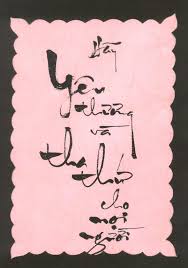 Hãy
yêu
thương
và
tha
thứ
cho
mọi
người